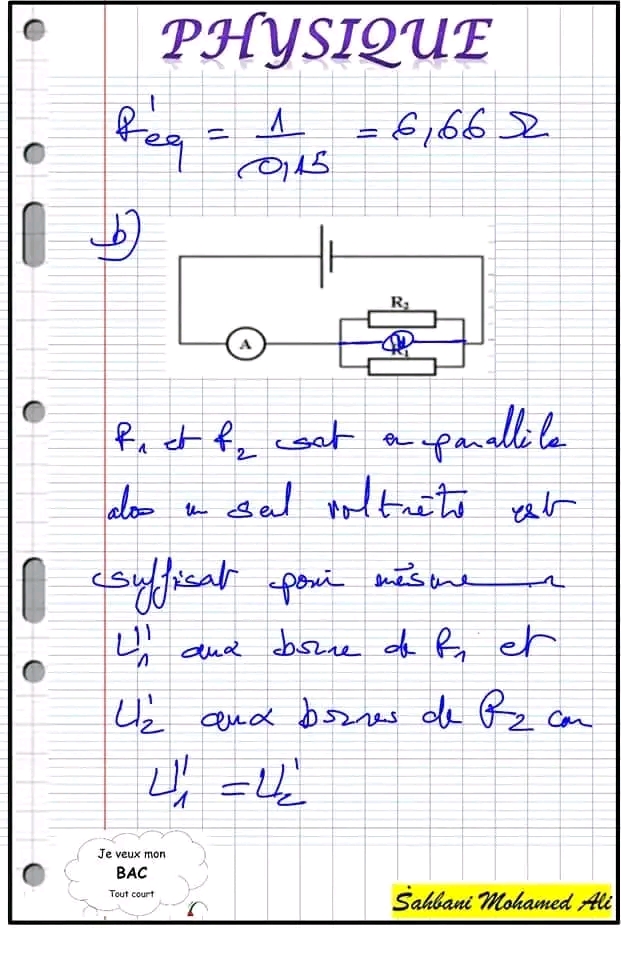 PHYSIQUE
R'eq = 1/0,15 = 6,66 Ω
b)
R₂
A
R₁
R₁ et R₂ sat en parallile
alos un seul voltmètre est
suffisat pour mésure
U'₁ aux borne de R₁ et
U'₂ aux bornes de R₂ car
U'₁ = U'₂
Je veux mon
BAC
Tout court
Sahbani Mohamed Ali